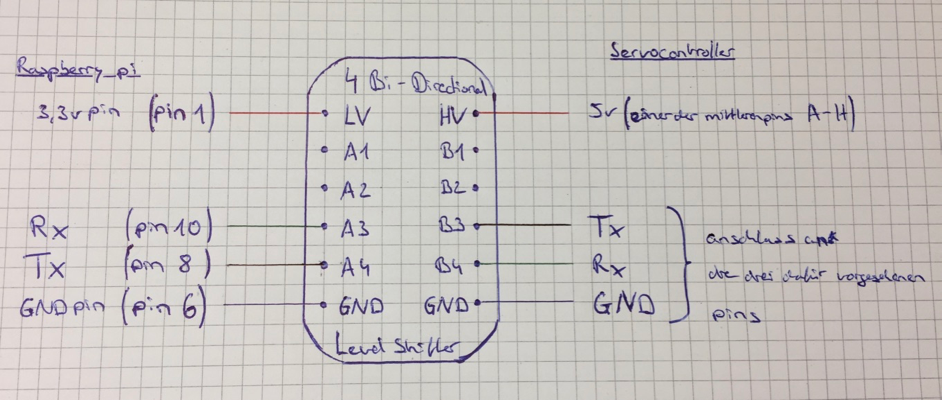 Raspberry_pi
Servocontroller
4 Bi-Directional
3,3v pin (pin 1)
LV HV
5v (einer der mittleren pins A-H)
A1 B1
A2 B2
Rx (pin 10)
A3 B3
Tx
Tx (pin 8)
A4 B4
Rx
GND pin (pin 6)
GND GND
GND
anschluss an
die drei dafür vorgesehenen
pins
Level Shifter